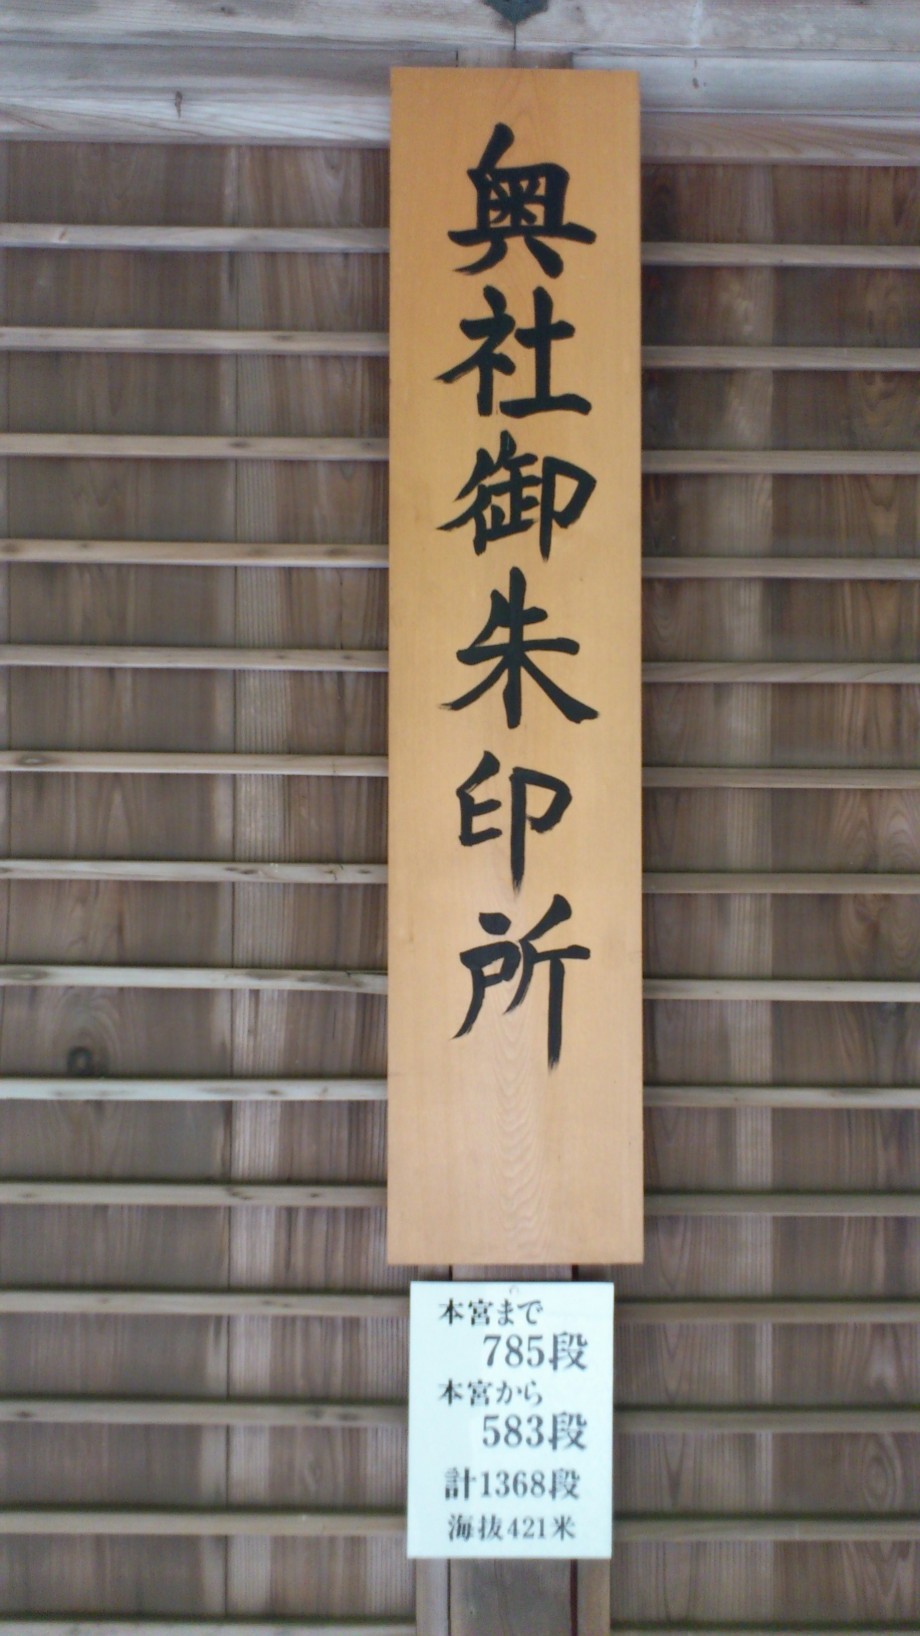 奥社御朱印所
本宮まで
785段
本宮から
583段
計1368段
海抜421米